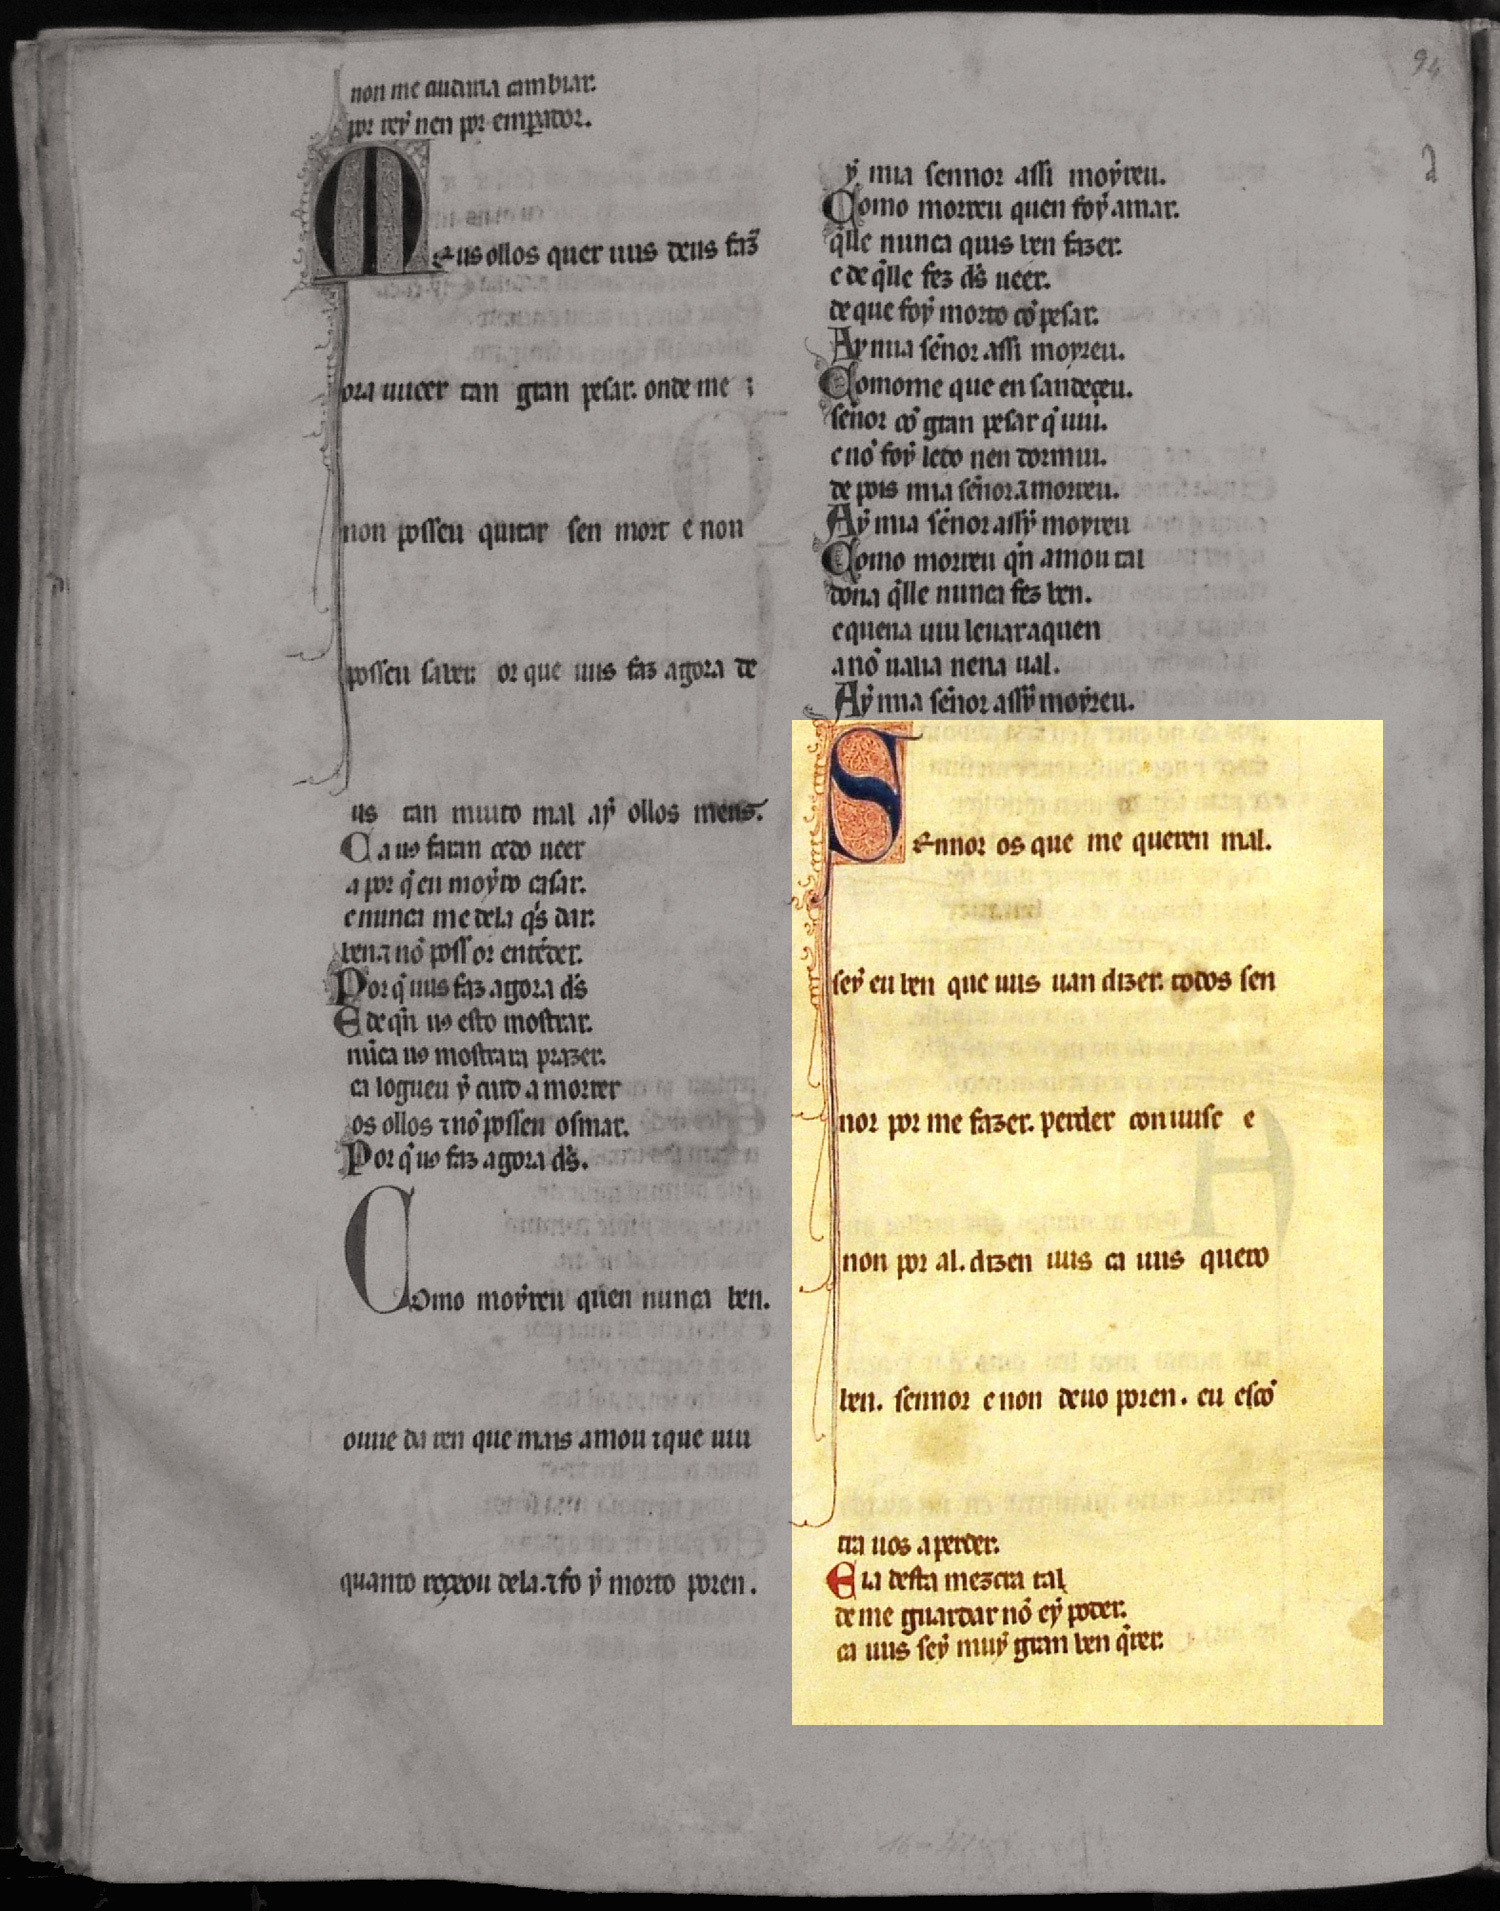 non me cuidaria cambiar.
por reӱ nen por emꝑador.
Meus ollos quer uus deus faz̃
ora uueer tan gran pesar. onde me
non posseu quitar sen mort e non
posseu saber. or que uus faz agora de
us tan muito mal aӱ ollos meus.
Ca uꝯ faran cedo ueer
a por q̃ eu moӱro casar.
e nunca me dela q̃s dar.
ben. ⁊ nõ poss or entẽder.
Por q̃ uus faz agora d̃s
E de qñ uꝯ esto mostrar.
nũca uꝯ mostrara prazer.
ca logueu ӱ cuido a morrer
os ollos ⁊ nõ posseu osmar.
Por q̃ uꝯ faz agora d̃s.
Como moӱreu quen nunca ben.
ouue da ren que mais amou ⁊ que uiu
quanto reçeou dela. ⁊ fo ӱ morto poren.
ӱ mia sennor assi moӱreu.
Como morreu quen foӱ amar.
q̃lle nunca quis ben fazer.
e de q̃lle fez d̃s ueer.
de que foӱ morto cõ pesar.
Aӱ mia sẽnor assi moyreu.
Como ome que en sandeçeu.
sẽnor cõ gran pesar q̃ uiu.
e nõ foӱ ledo nen dormiu.
depois mia sẽnor. ⁊ morreu.
Aӱ mia sẽnor assӱ moyreu
Como morreu qñ amou tal
dona q̃lle nunca fez ben.
e quena uiu leuar a quen
a nõ ualia nena ual.
Aӱ mia sẽnor assӱ moӱreu.
Sennor os que me queren mal.
seӱ eu ben que uus uan dizer. todos sen
nor por me fazer. perder con uusc e
non por al. dizen uus ca uus quero
ben. sennor e non deuo poren. eu escõ
tra uos a perder.
E ia desta mezcra tal
de me guardar nõ eӱ poder.
ca uus seӱ muӱ gran ben q̃rer.
94